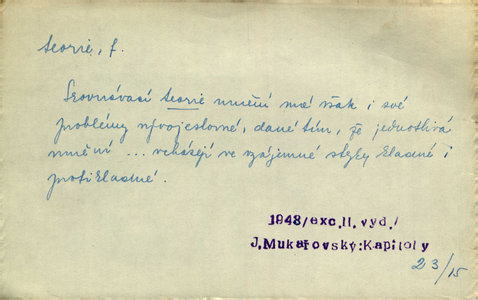 teorie, f.
Srovnávací teorie umění má však i své
problémy vývojeslovné, dané tím, že jednotlivá
umění ... vcházejí ve vzájemné styky kladné i
protikladné.
1948/exc.II.vyd./
J.Mukařovský:Kapitoly
23/15